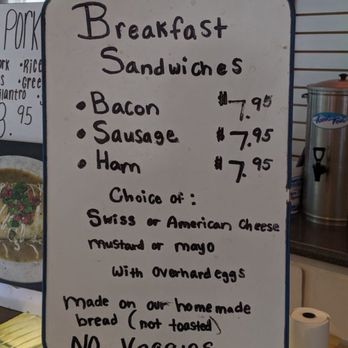 PORK
RK • RICE
S • GREE
ilantro
8.95
Breakfast
Sandwiches
• Bacon $7.95
• Sausage $7.95
• Ham $7.95
Choice of:
Swiss or American Cheese
mustard or mayo
with overhard eggs
Made on our homemade
bread (not toasted)
NO Veggies